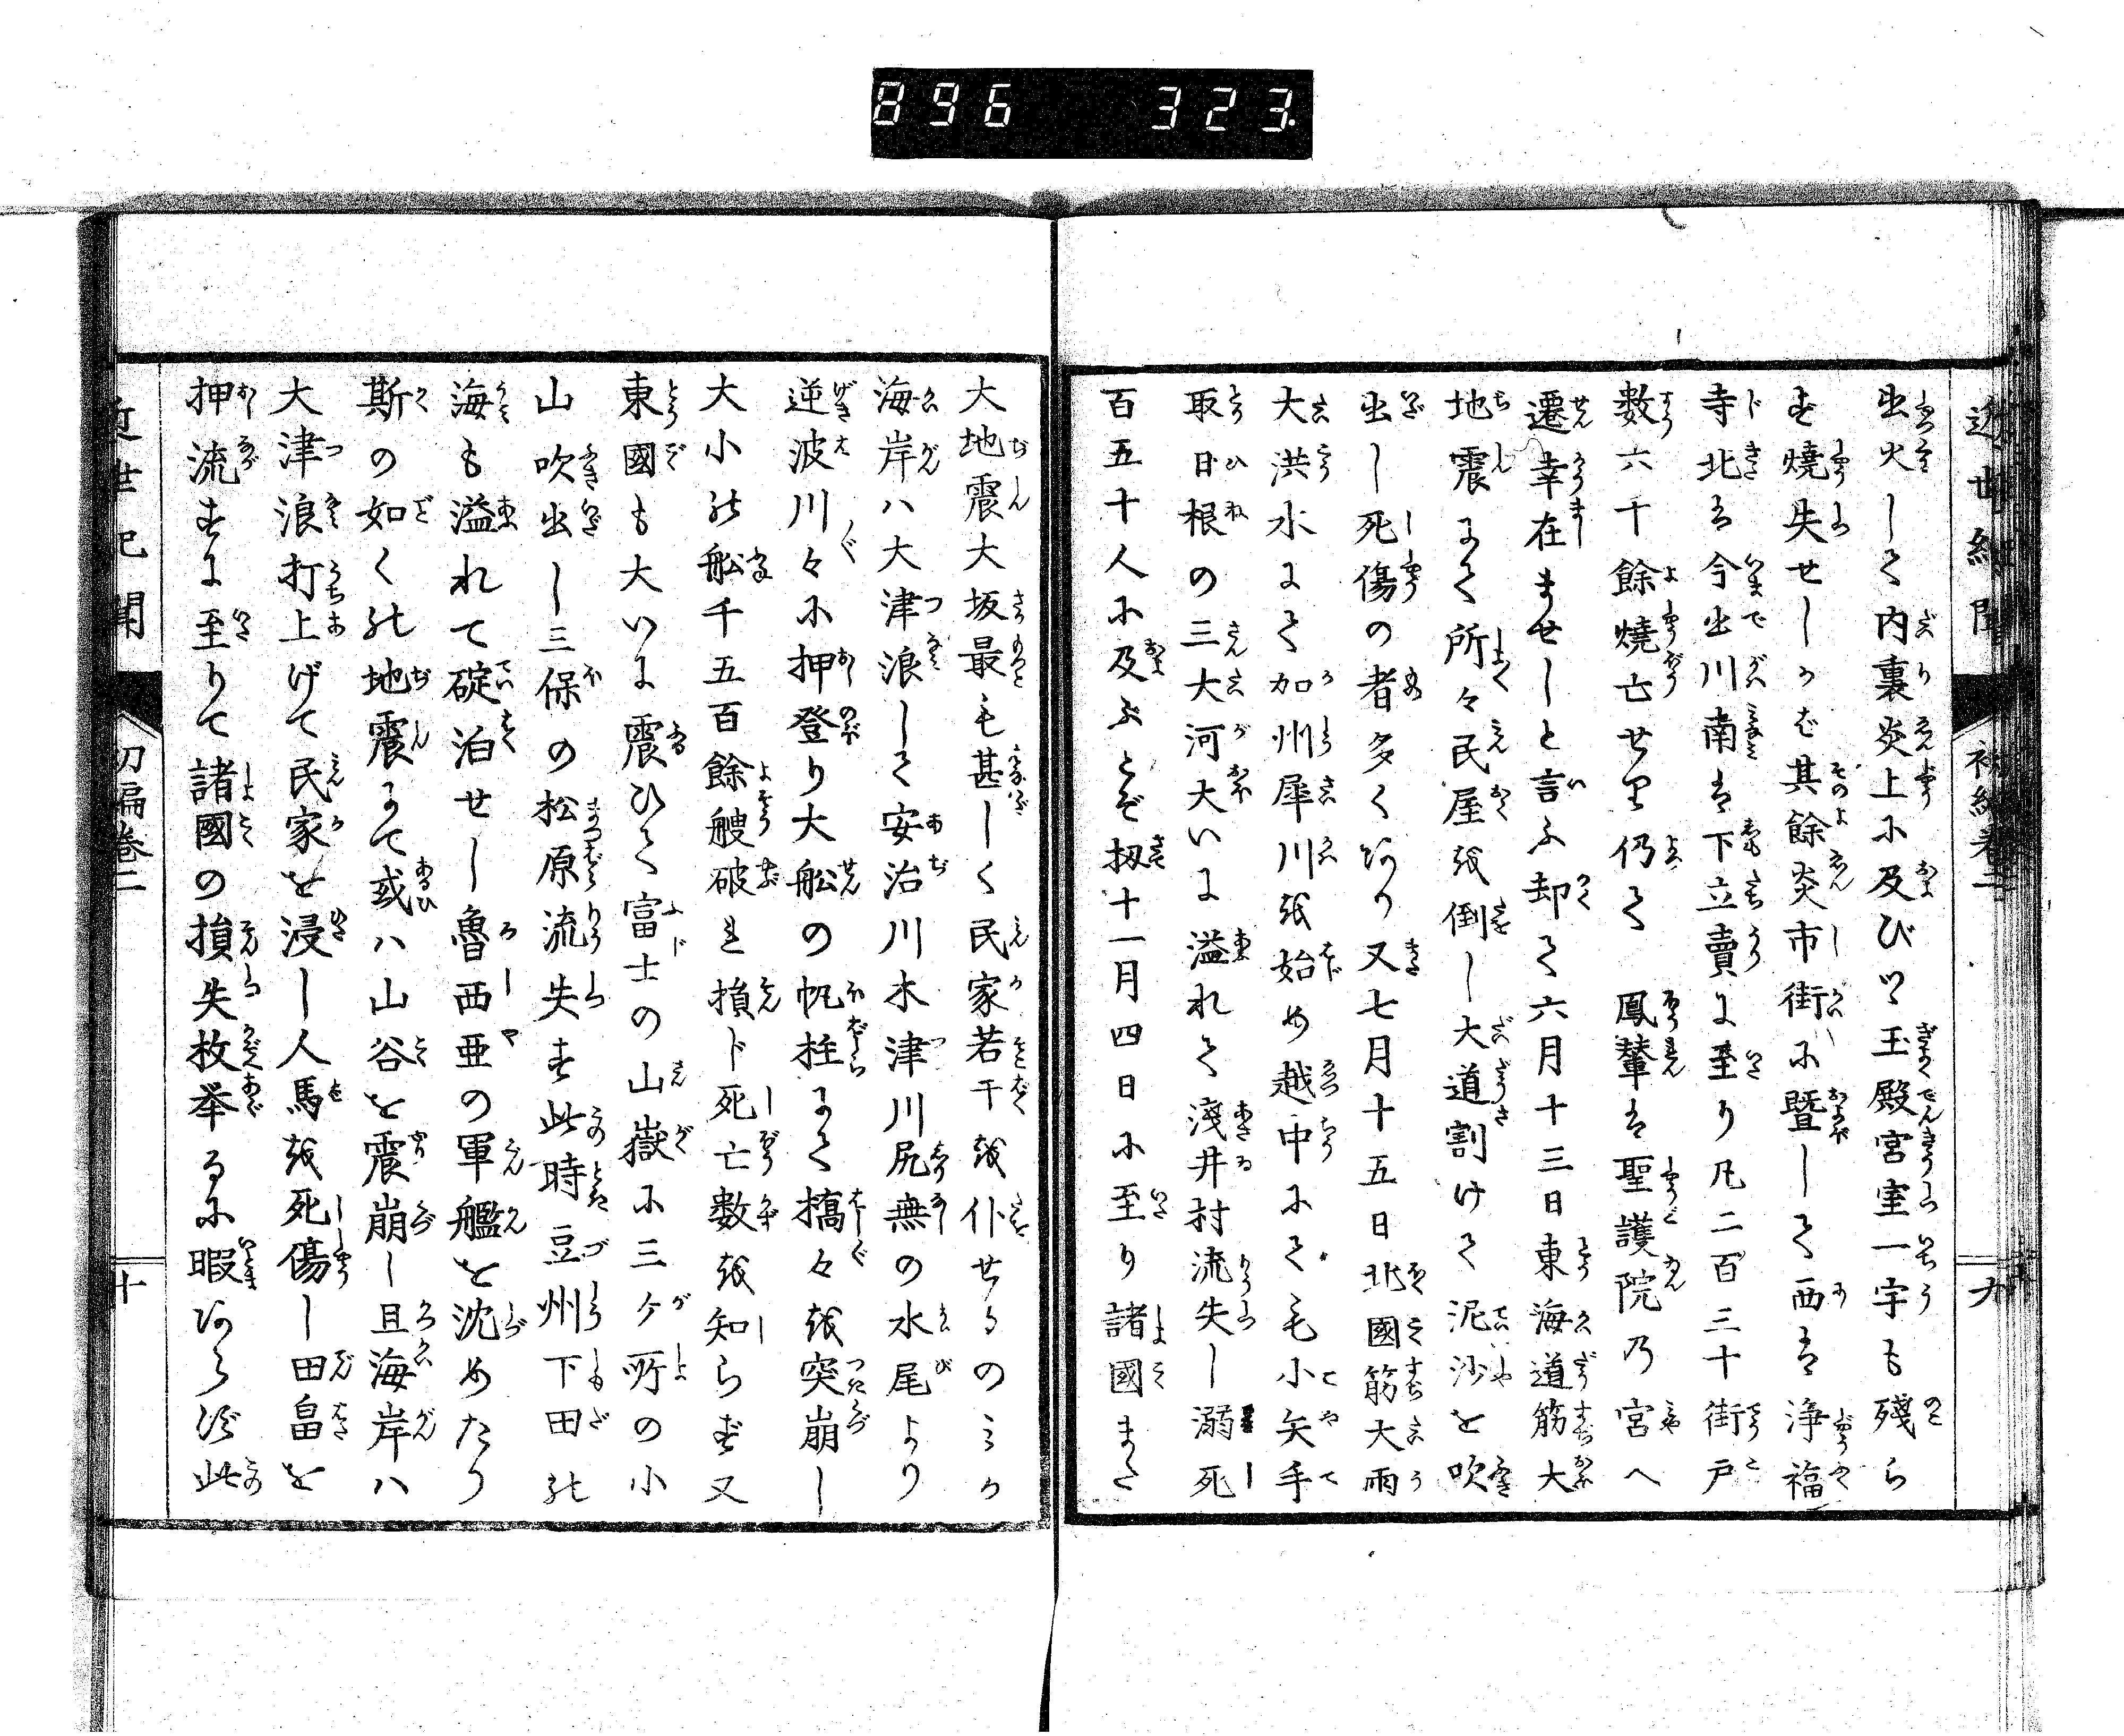 896 323
近世紀聞 初編巻二 九
出火して内裏炎上に及びツヽ玉殿宮室一宇も殘ら
ず燒失せしかば其餘炎市街に曁して西は浄福
寺北は今出川南は下立賣に至り凡二百三十街戸
数六千餘燒亡せり仍て 鳳輦は聖護院乃宮へ
遷幸在ませしと言ふ却て六月十三日東海道筋大
地震にて所々民屋を倒し大道割けて泥沙を吹
出し死傷の者多くあり又七月十五日北國筋大雨
大洪水にて加州犀川を始め越中にて毛小矢手
取日根の三大河大いに溢れて淺井村流失し溺死
百五十人に及ぶとぞ扨十一月四日に至り諸國また
大地震大坂最も甚しく民家若干を仆せるのミか
海岸ハ大津浪して安治川木津川尻無の水尾より
逆波川々に押登り大舩の帆柱にて橋々を突崩し
大小の舩千五百餘艘破れ損じ死亡数を知らず又
東國も大いに震ひて富士の山嶽に三ケ所の小
山吹出し三保の松原流失す此時豆州下田の
海も溢れて碇泊せし魯西亜の軍艦を沈めたり
斯の如くの地震にて或ハ山谷を震崩し且海岸ハ
大津浪打上げて民家を浸し人馬を死傷し田畠を
押流すに至りて諸國の損失枚挙るに暇あらず此
近世紀聞 初編巻二 十